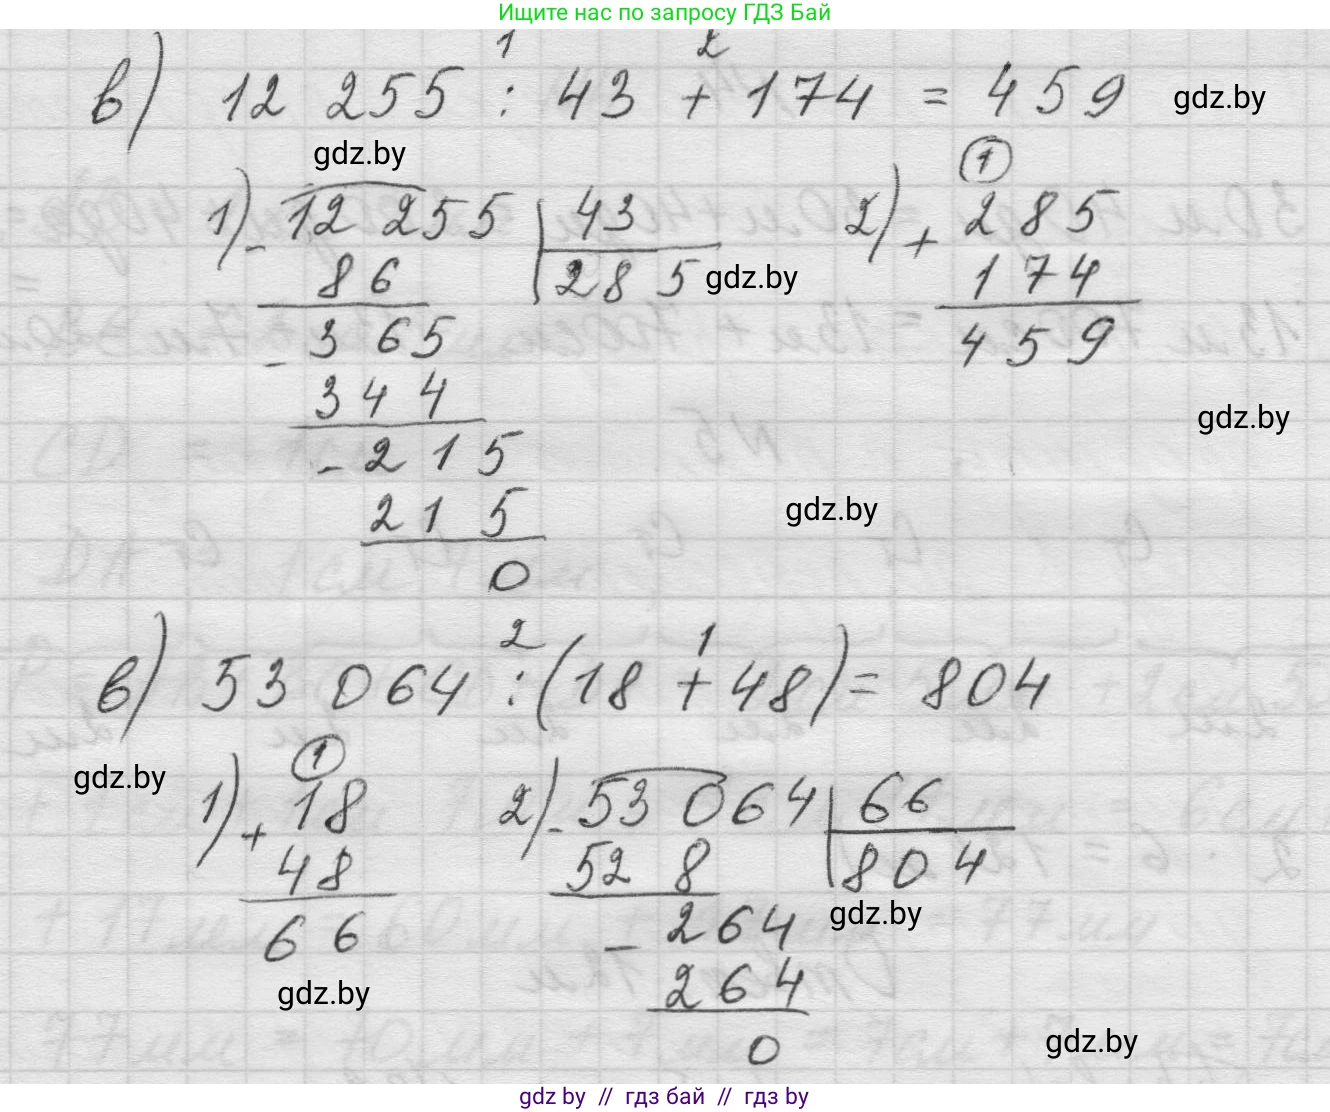 Ищите нас по запросу ГДЗ Бай
1 2
в) 12 255 : 43 + 174 = 459 gdz.by
gdz.by
1) - 12 255 | 43 2) + 285 (1)
86 285 gdz.by 174
- 365 459
344 gdz.by
- 215
215 gdz.by
0
2 1
в) 53 064 : (18 + 48) = 804
gdz.by
1) + 18 (1) 2) - 53 064 | 66
48 52 8 804
66 - 264 gdz.by
gdz.by 264
0 gdz.by
gdz by // гдз бай // гдз by